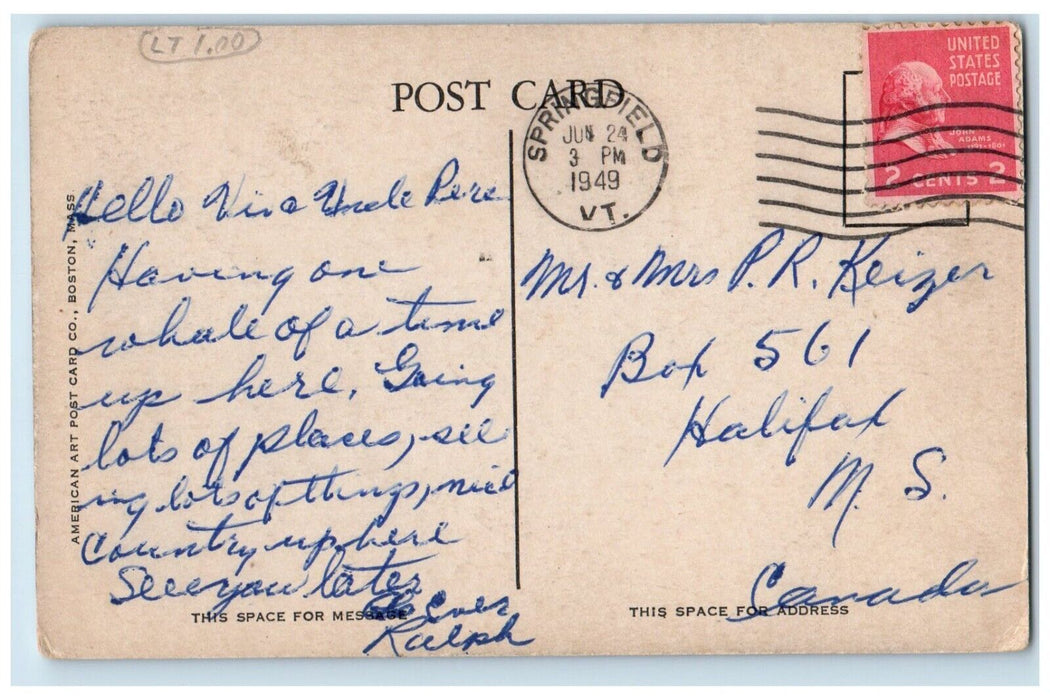 LT 1.00
POST CARD
SPRINGFIELD
JUN 24
3 PM
1949
VT.
UNITED
STATES
POSTAGE
JOHN
ADAMS
1797-1801
2 CENTS 2
AMERICAN ART POST CARD CO., BOSTON, MASS
Hello Uncle
Having one
whale of a time
up here. Going
lots of places, see
ing lots of things, nice
Country up here
See you later
As Ever
Ralph
THIS SPACE FOR MESSAGE
Mr. & Mrs P. R. Keizer
Box 561
Halifax
N. S.
Canada
THIS SPACE FOR ADDRESS